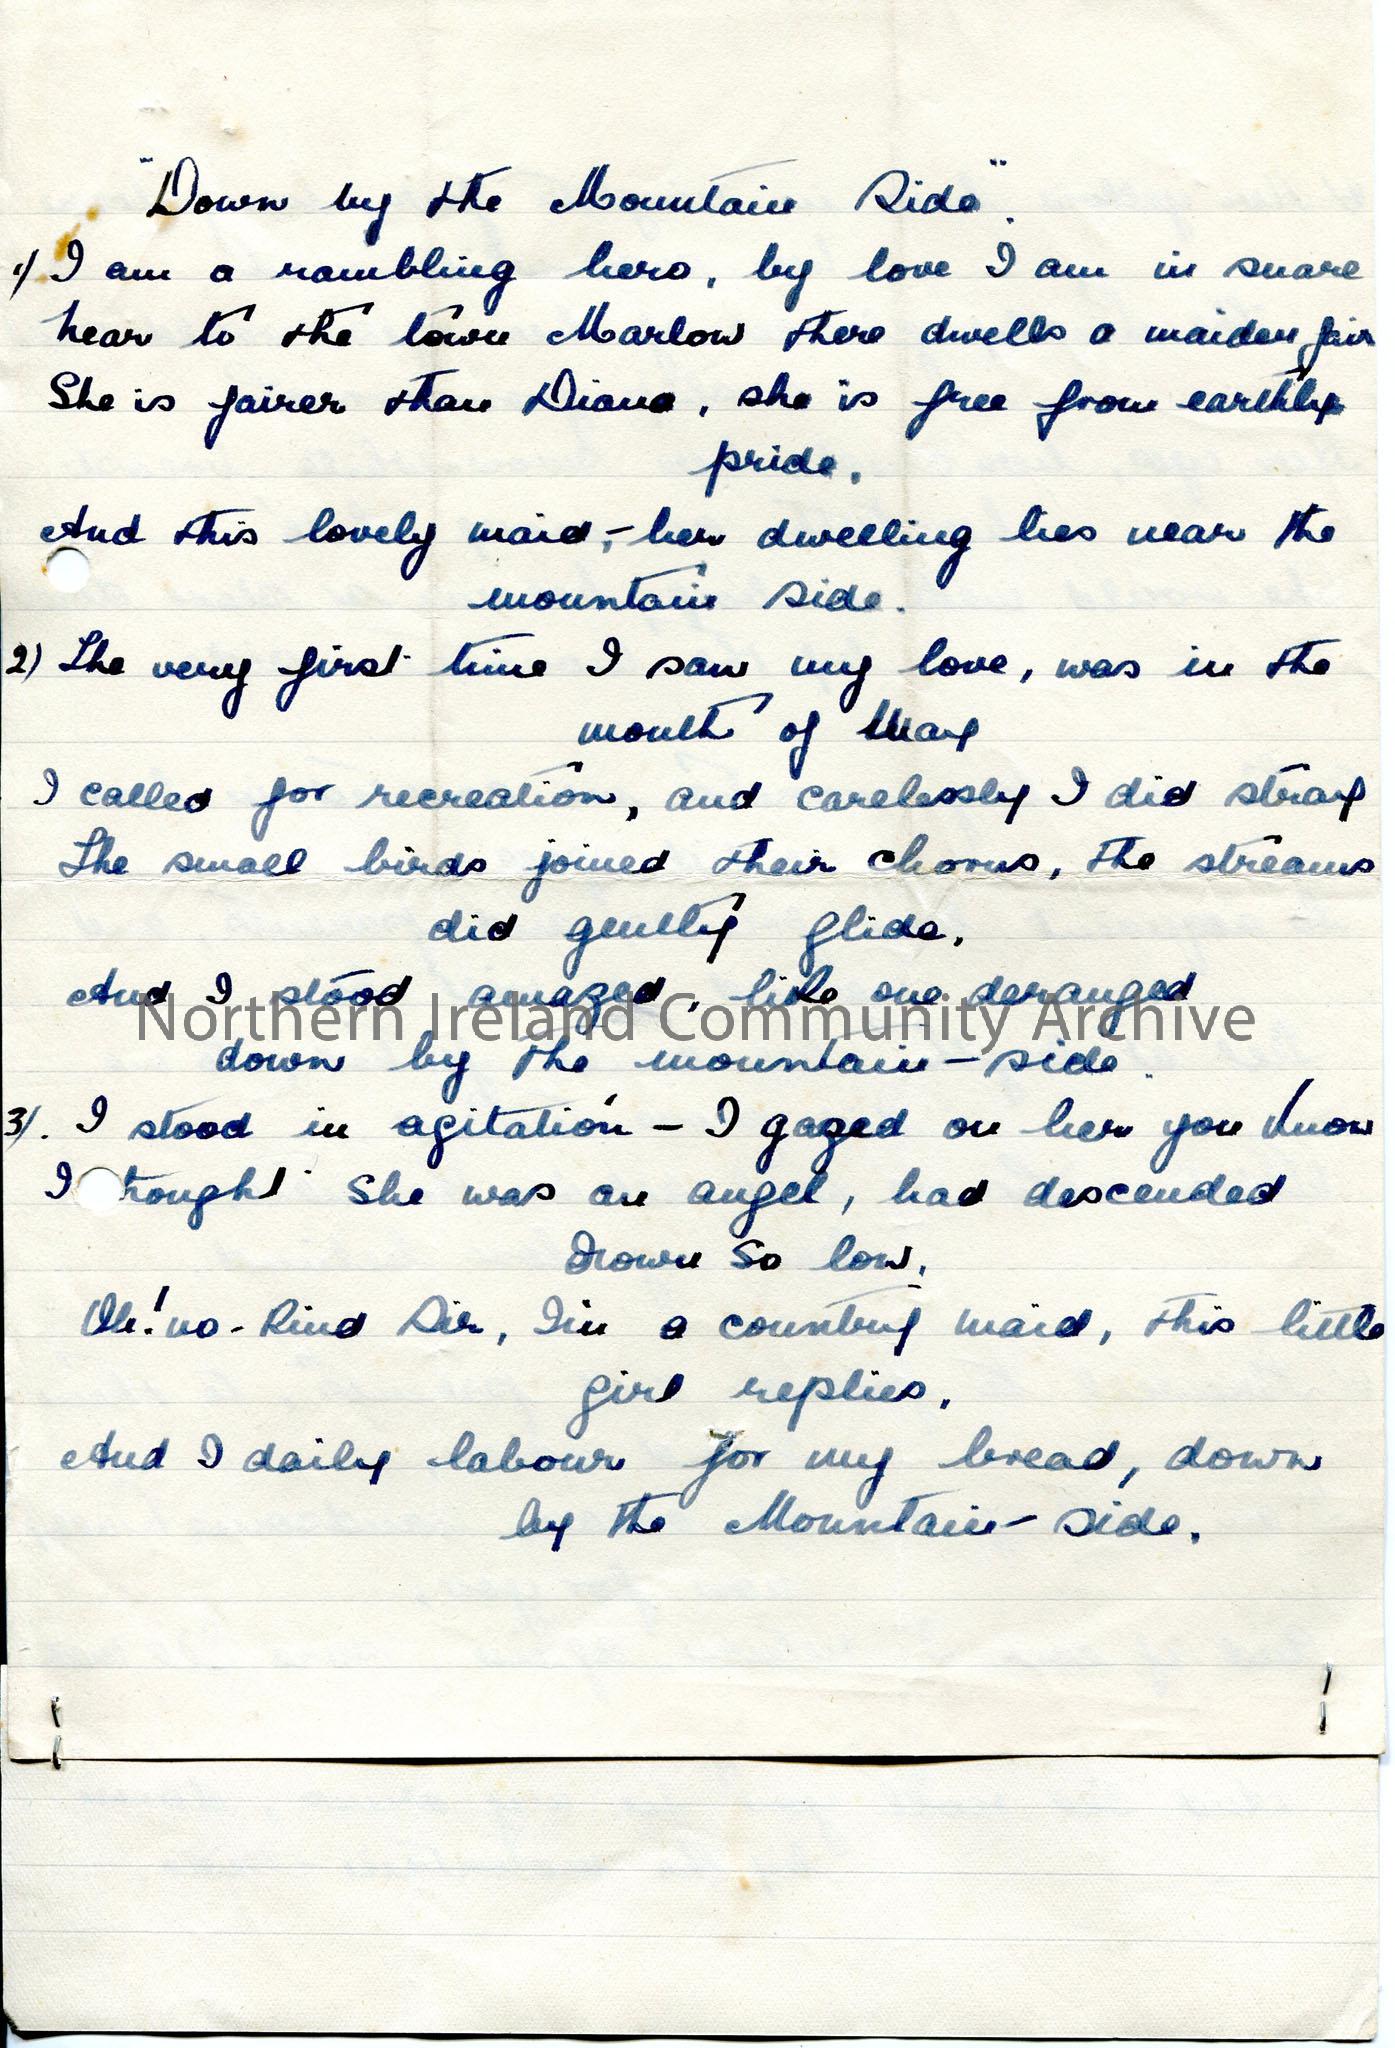 "Down by the Mountain Side".
1/ I am a rambling hero, by love I am in snare
near to the town Marlow there dwells a maiden fair
She is fairer than Diana, she is free from earthly
pride.
And this lovely maid, - her dwelling lies near the
mountain side.
2) The very first time I saw my love, was in the
month of May
I called for recreation, and carelessly I did stray
The small birds joined their chorus, the streams
did gently glide.
And I stood amazed, like one deranged
Northern Ireland Community Archive
down by the mountain-side.
3/. I stood in agitation - I gazed on her you know
I thought She was an angel, had descended
Down So low.
Oh! no - Kind Sir, I'm a country maid, this little
girl replies.
And I daily labour for my bread, down
by the Mountain-side.